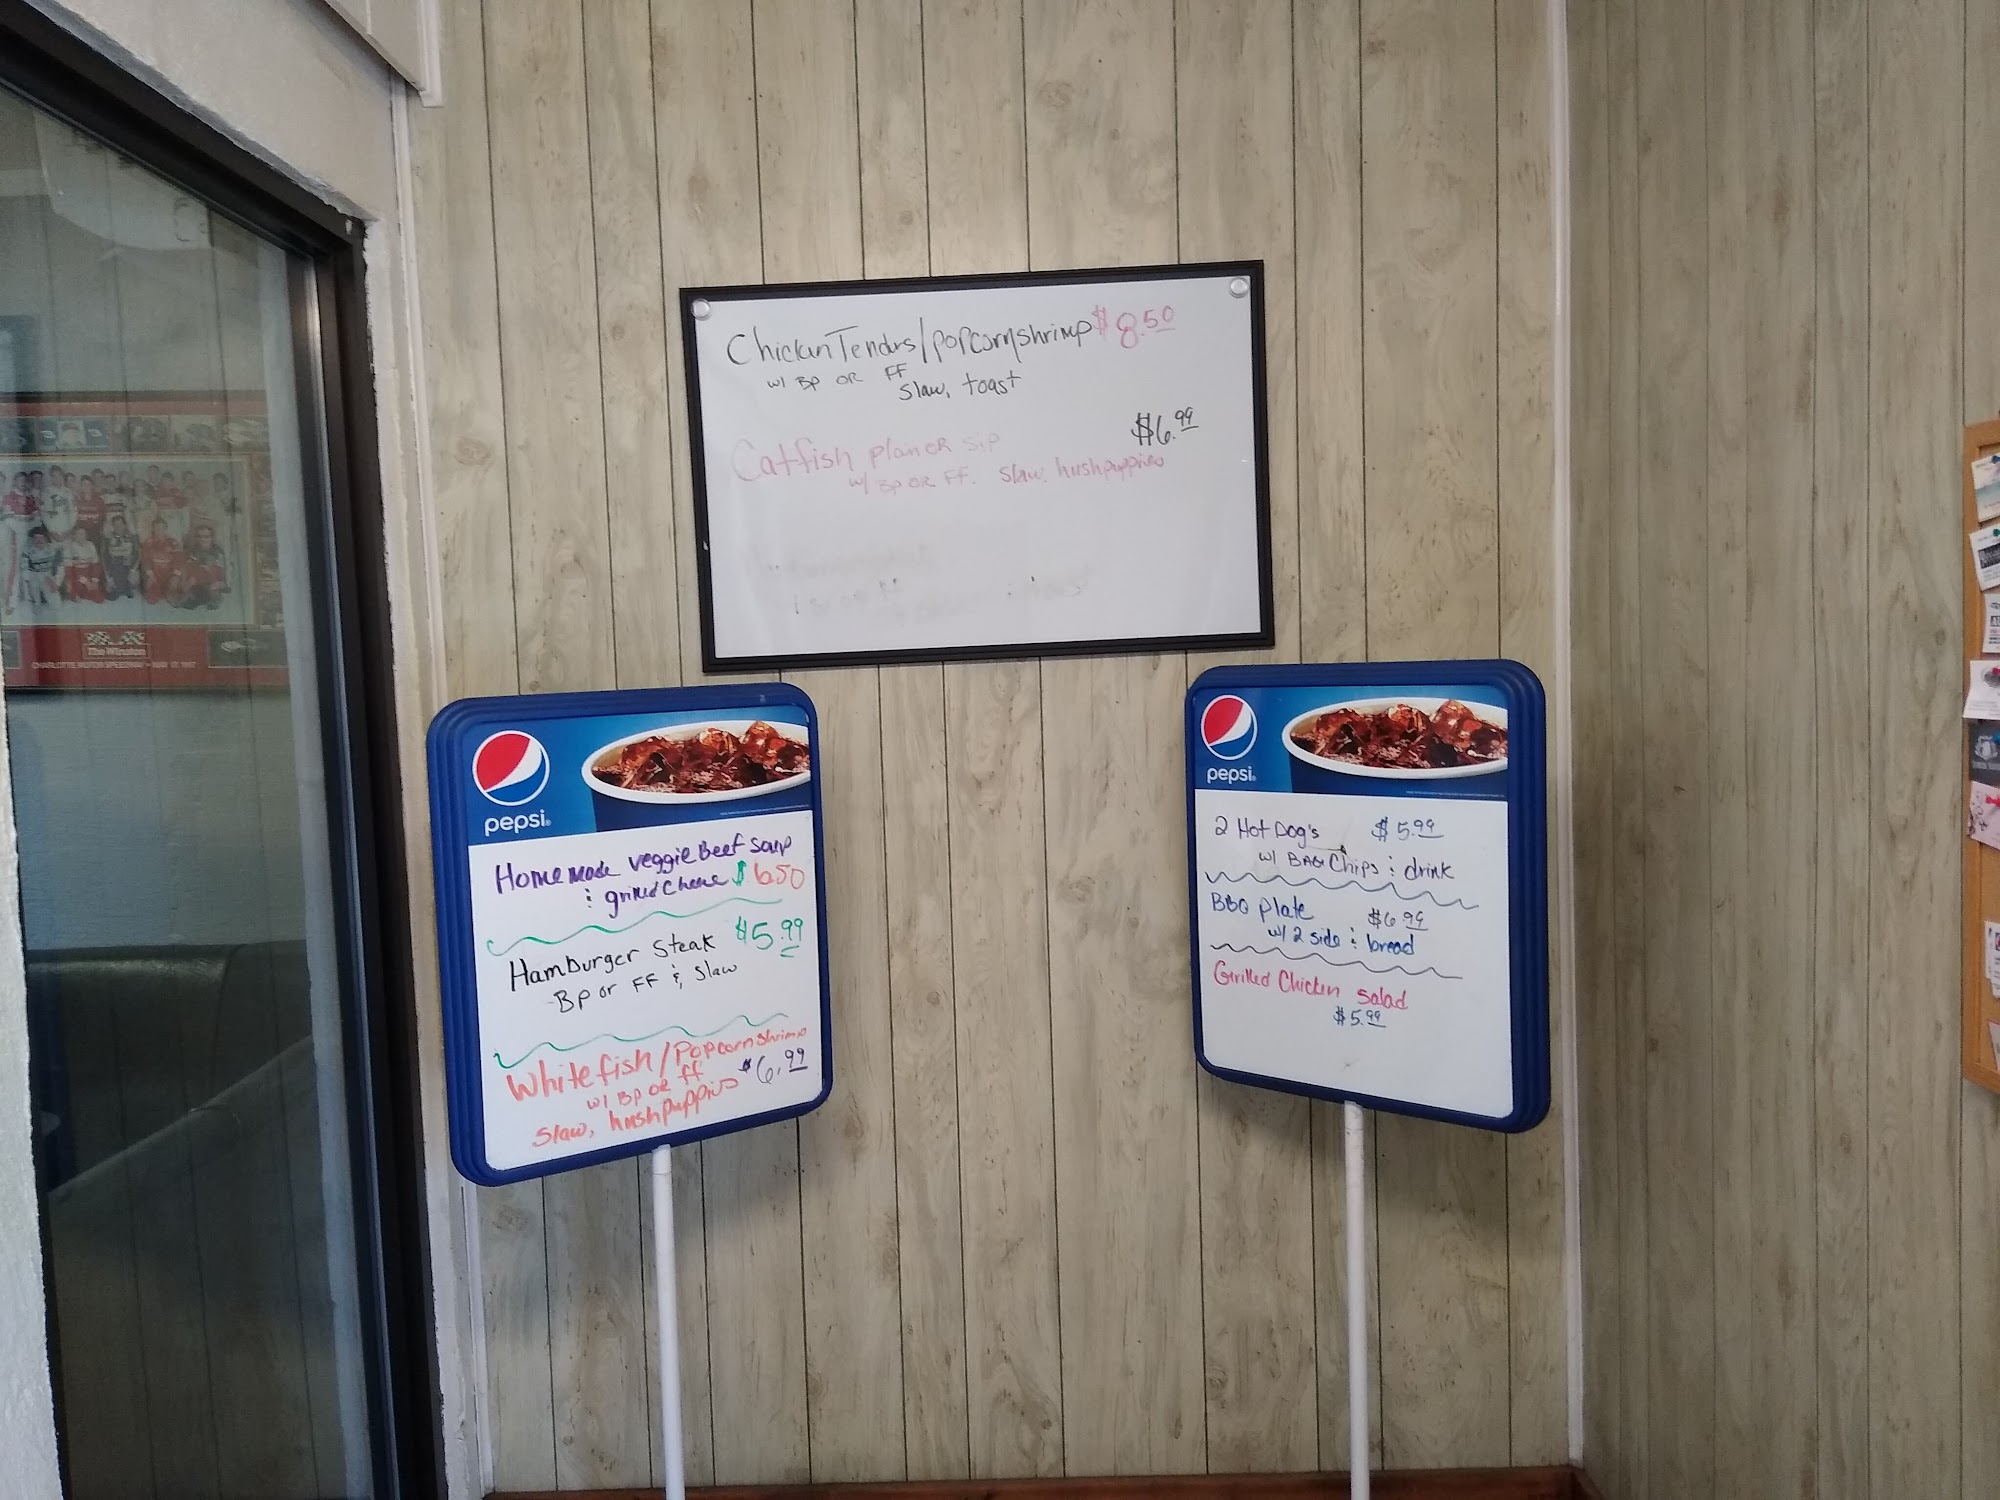 Chicken Tenders/popcorn shrimp $8.50
w/ BP OR FF
Slaw, toast
Catfish planer sip $6.99
w/ BP OR FF. Slaw, hushpuppies
pepsi
Homemade veggie Beef Soup
& grilled Cheese $6.50
Hamburger Steak $5.99
BP or FF & Slaw
White fish/Popcorn shrimp
w/ BP OR FF $6.99
Slaw, hushpuppies
pepsi
2 Hot Dog's $5.99
w/ BAG Chips & drink
BBQ plate $6.99
w/ 2 side & bread
Grilled Chicken Salad
$5.99
The Winston
CHARLOTTE MOTOR SPEEDWAY